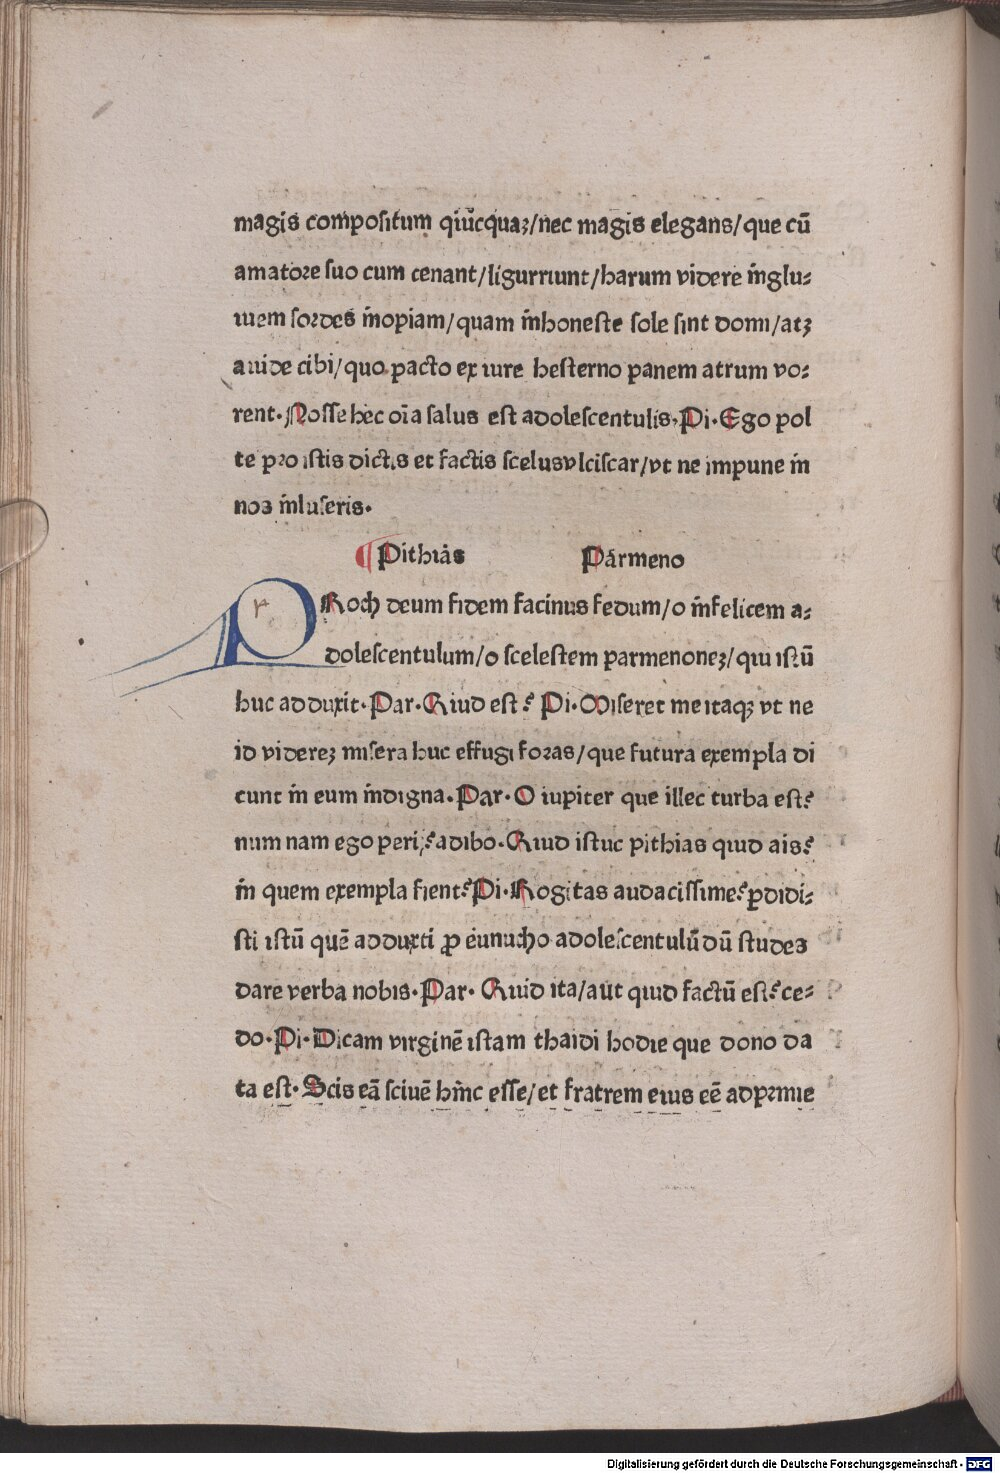 magis compositum qiũcquaꝫ/nec magis elegans/que cũ
amatore suo cum cenant/ligurriunt/harum videre inglu-
uiem sordes inopiam/quam inhoneste sole sint domi/atꝫ
auide cibi/quo pacto ex iure hesterno panem atrum vo-
rent. Nosse hec oīa salus est adolescentulis. Pi. Ego pol
te pro istis dictis et factis scelus vlciscar/vt ne impune in
nos inluseris.
¶ Pithias Parmeno
PRoch deum fidem facinus fedum/o infelicem a-
dolescentulum/o scelestem parmenoneꝫ/qui istũ
huc adduxit. Par. Qiud est? Pi. Miseret me itaqꝫ vt ne
id videreꝫ misera huc effugi foras/que futura exempla di
cunt in eum indigna. Par. O iupiter que illec turba est?
num nam ego peri,? adibo. Qiud istuc pithias qiud ais?
in quem exempla fient? Pi. Rogitas audacissime? ꝑdidi-
sti istũ quē adduxti ꝓ eunucho adolescentulũ dũ studes
dare verba nobis. Par. Qiuid ita/aut qiud factũ est? ce-
do. Pi. Dicam virginē istam thaidi hodie que dono da
ta est. Scis eā sciuē hinc esse/et fratrem eius eē adprime
Digitalisierung gefördert durch die Deutsche Forschungsgemeinschaft - DFG